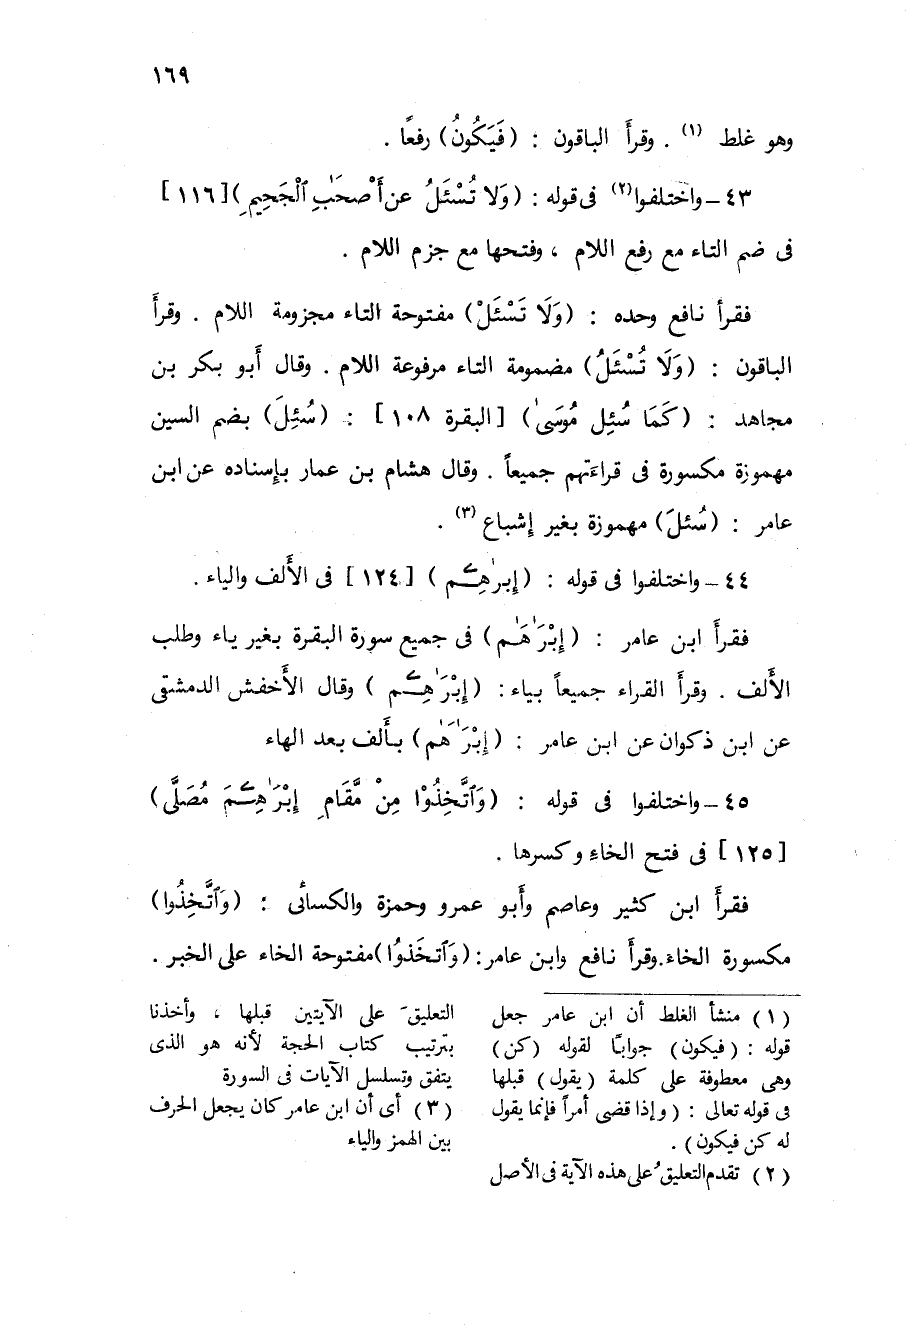 ١٦٩
وهو غلط (١) . وقرأ الباقون : (فَيَكُونُ) رفعًا .
٤٣ ـ واختلفوا(٢) فى قوله : (وَلَا تُسْئَلُ عن أَصْحَٰبِ ٱلْجَحِيمِ)[١١٦]
فى ضم التاء مع رفع اللام ، وفتحها مع جزم اللام .
فقرأ نافع وحده : (وَلَا تَسْئَلْ) مفتوحة التاء مجزومة اللام . وقرأ
الباقون : (وَلَا تُسْئَلُ) مضمومة التاء مرفوعة اللام . وقال أبو بكر بن
مجاهد : (كَمَا سُئِل مُوسَىٰ) [البقرة ١٠٨] : (سُئِلَ) بضم السين
مهموزة مكسورة فى قراءتهم جميعاً . وقال هشام بن عمار بإسناده عن ابن
عامر : (سُئلَ) مهموزة بغير إشباع (٣) .
٤٤ ـ واختلفوا فى قوله : (إبرٰهِـم ) [١٢٤] فى الألف والياء .
فقرأ ابن عامر : (إِبْرَٰهَـٰم) فى جميع سورة البقرة بغير ياء وطلب
الألف . وقرأ القراء جميعاً بياء : (إِبْرَٰهِـم ) وقال الأخفش الدمشقى
عن ابن ذكوان عن ابن عامر : (إِبْرَٰهَٰم) بألف بعد الهاء
٤٥ ـ واختلفوا فى قوله : (وَٱتَّخِذُوْا مِنْ مَّقَامِ إِبْرَٰهِـمَ مُصَلًّى)
[١٢٥] فى فتح الخاء وكسرها .
فقرأ ابن كثير وعاصم وأبو عمرو وحمزة والكسائى : (وَٱتَّخِذُوا)
مكسورة الخاء.وقرأ نافع وابن عامر: (وَٱتخَذوُا)مفتوحة الخاء على الخبر .
(١) منشأ الغلط أن ابن عامر جعل
قوله : (فيكون) جوابًا لقوله (كن)
وهى معطوفة على كلمة (يقول) قبلها
فى قوله تعالى : (وإذا قضى أمراً فإنما يقول
له كن فيكون) .
(٢) تقدم التعليق على هذه الآية فى الأصل
التعليق على الآيتين قبلها ، وأخذنا
بترتيب كتاب الحجة لأنه هو الذى
يتفق وتسلسل الآيات فى السورة
(٣) أى أن ابن عامر كان يجعل الحرف
بين الهمز والياء